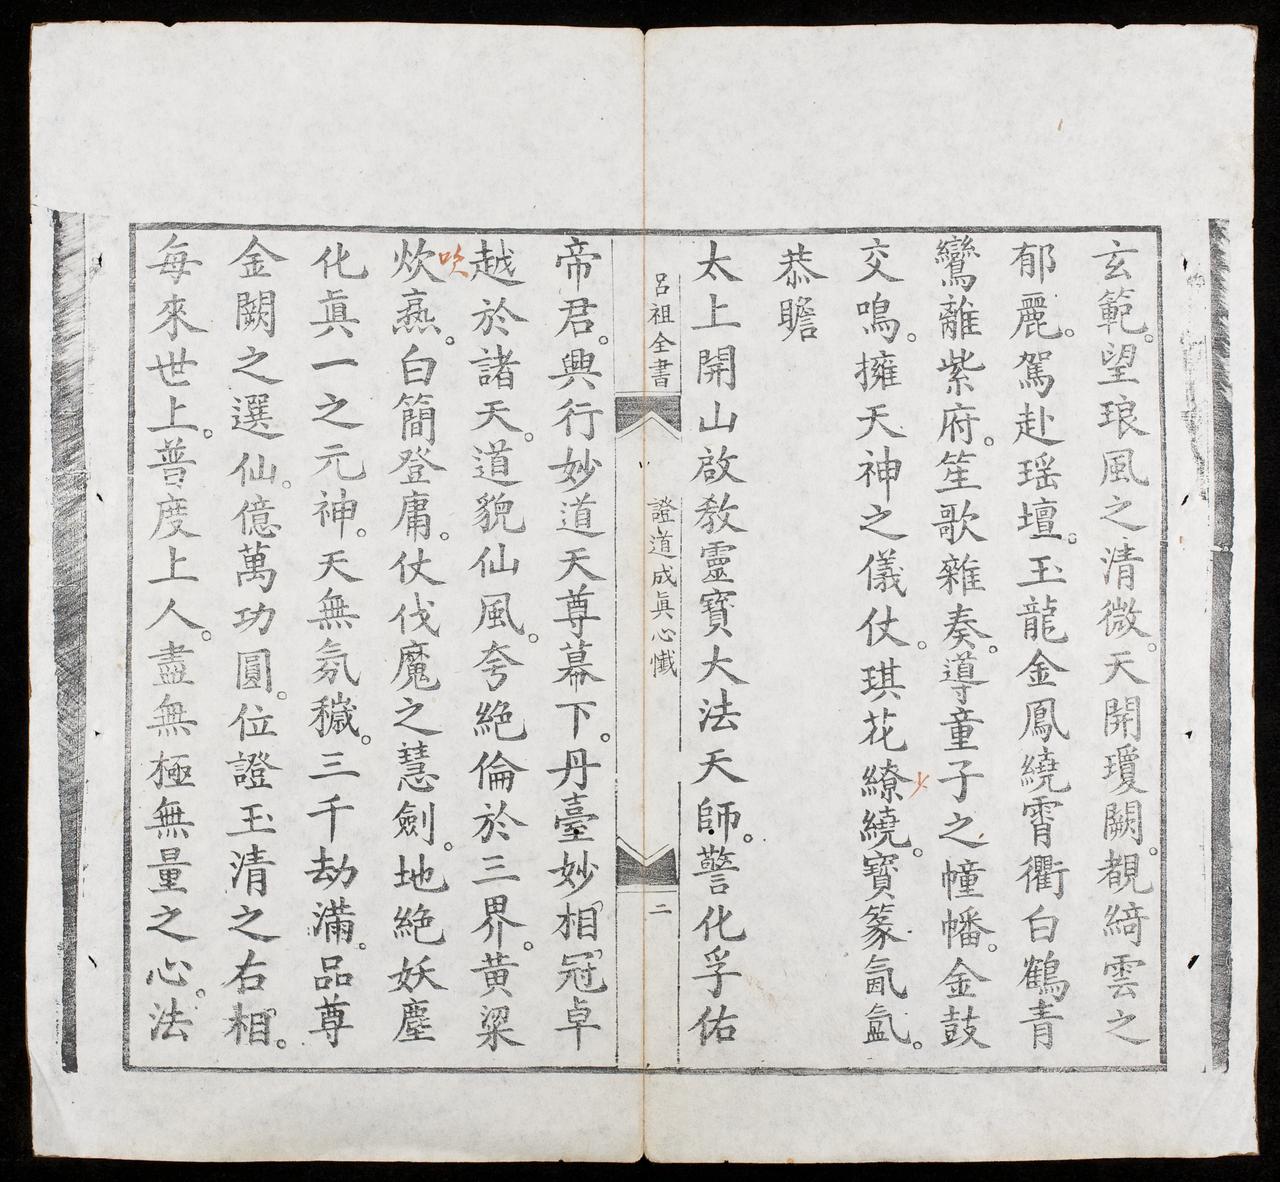 玄範。望琅風之清微。天開瓊闕。覩綺雲之
郁麗。駕赴瑶壇。玉龍金鳳繞霄衢白鶴青
鸞離紫府。笙歌雜奏。導童子之幢幡。金鼓
交鳴。擁天神之儀仗。琪花繚繞。寶篆氤氳。
恭瞻
太上開山啟教靈寶大法天師。警化孚佑
呂祖全書
證道成眞心懺
二
帝君。興行妙道天尊幕下。丹臺妙相。冠卓
越於諸天。道貌仙風。夸絕倫於三界。黄粱
炊熟。白簡登庸。仗伐魔之慧劍。地絕妖塵
吹
化眞一之元神。天無氛穢。三千劫滿。品尊
金闕之選仙。億萬功圓。位證玉清之右相。
每來世上。普度上人。盡無極無量之心。法